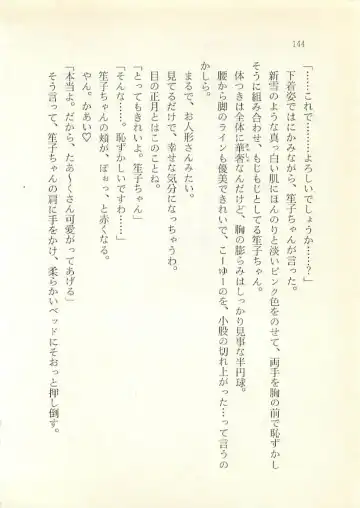 144
「……これで………よろしいでしょうか……?」
下着姿ではにかみながら、笙子ちゃんが言った。
新雪のような真っ白い肌にほんのりと淡いピンク色をのせて、両手を胸の前で恥ずかし
そうに組み合わせ、もじもじとしてる笙子ちゃん。
体つきは全体に華奢なんだけど、胸の膨らみはしっかり見事な半円球。
腰から脚のラインも優美できれいで、こーゆーのを、小股の切れ上がった…って言うの
かしら。
まるで、お人形さんみたい。
見てるだけで、幸せな気分になっちゃうわ。
目の正月とはこのことね。
「とってもきれいよ。笙子ちゃん」
「そんな……。恥ずかしいですわ……」
笙子ちゃんの頬が、ぽぉっ、と赤くなる。
やん。かあい♡
「本当よ。だから、たあ〜くさん可愛がってあげる」
そう言って、笙子ちゃんの肩に手をかけ、柔らかいベッドにそおっと押し倒す。